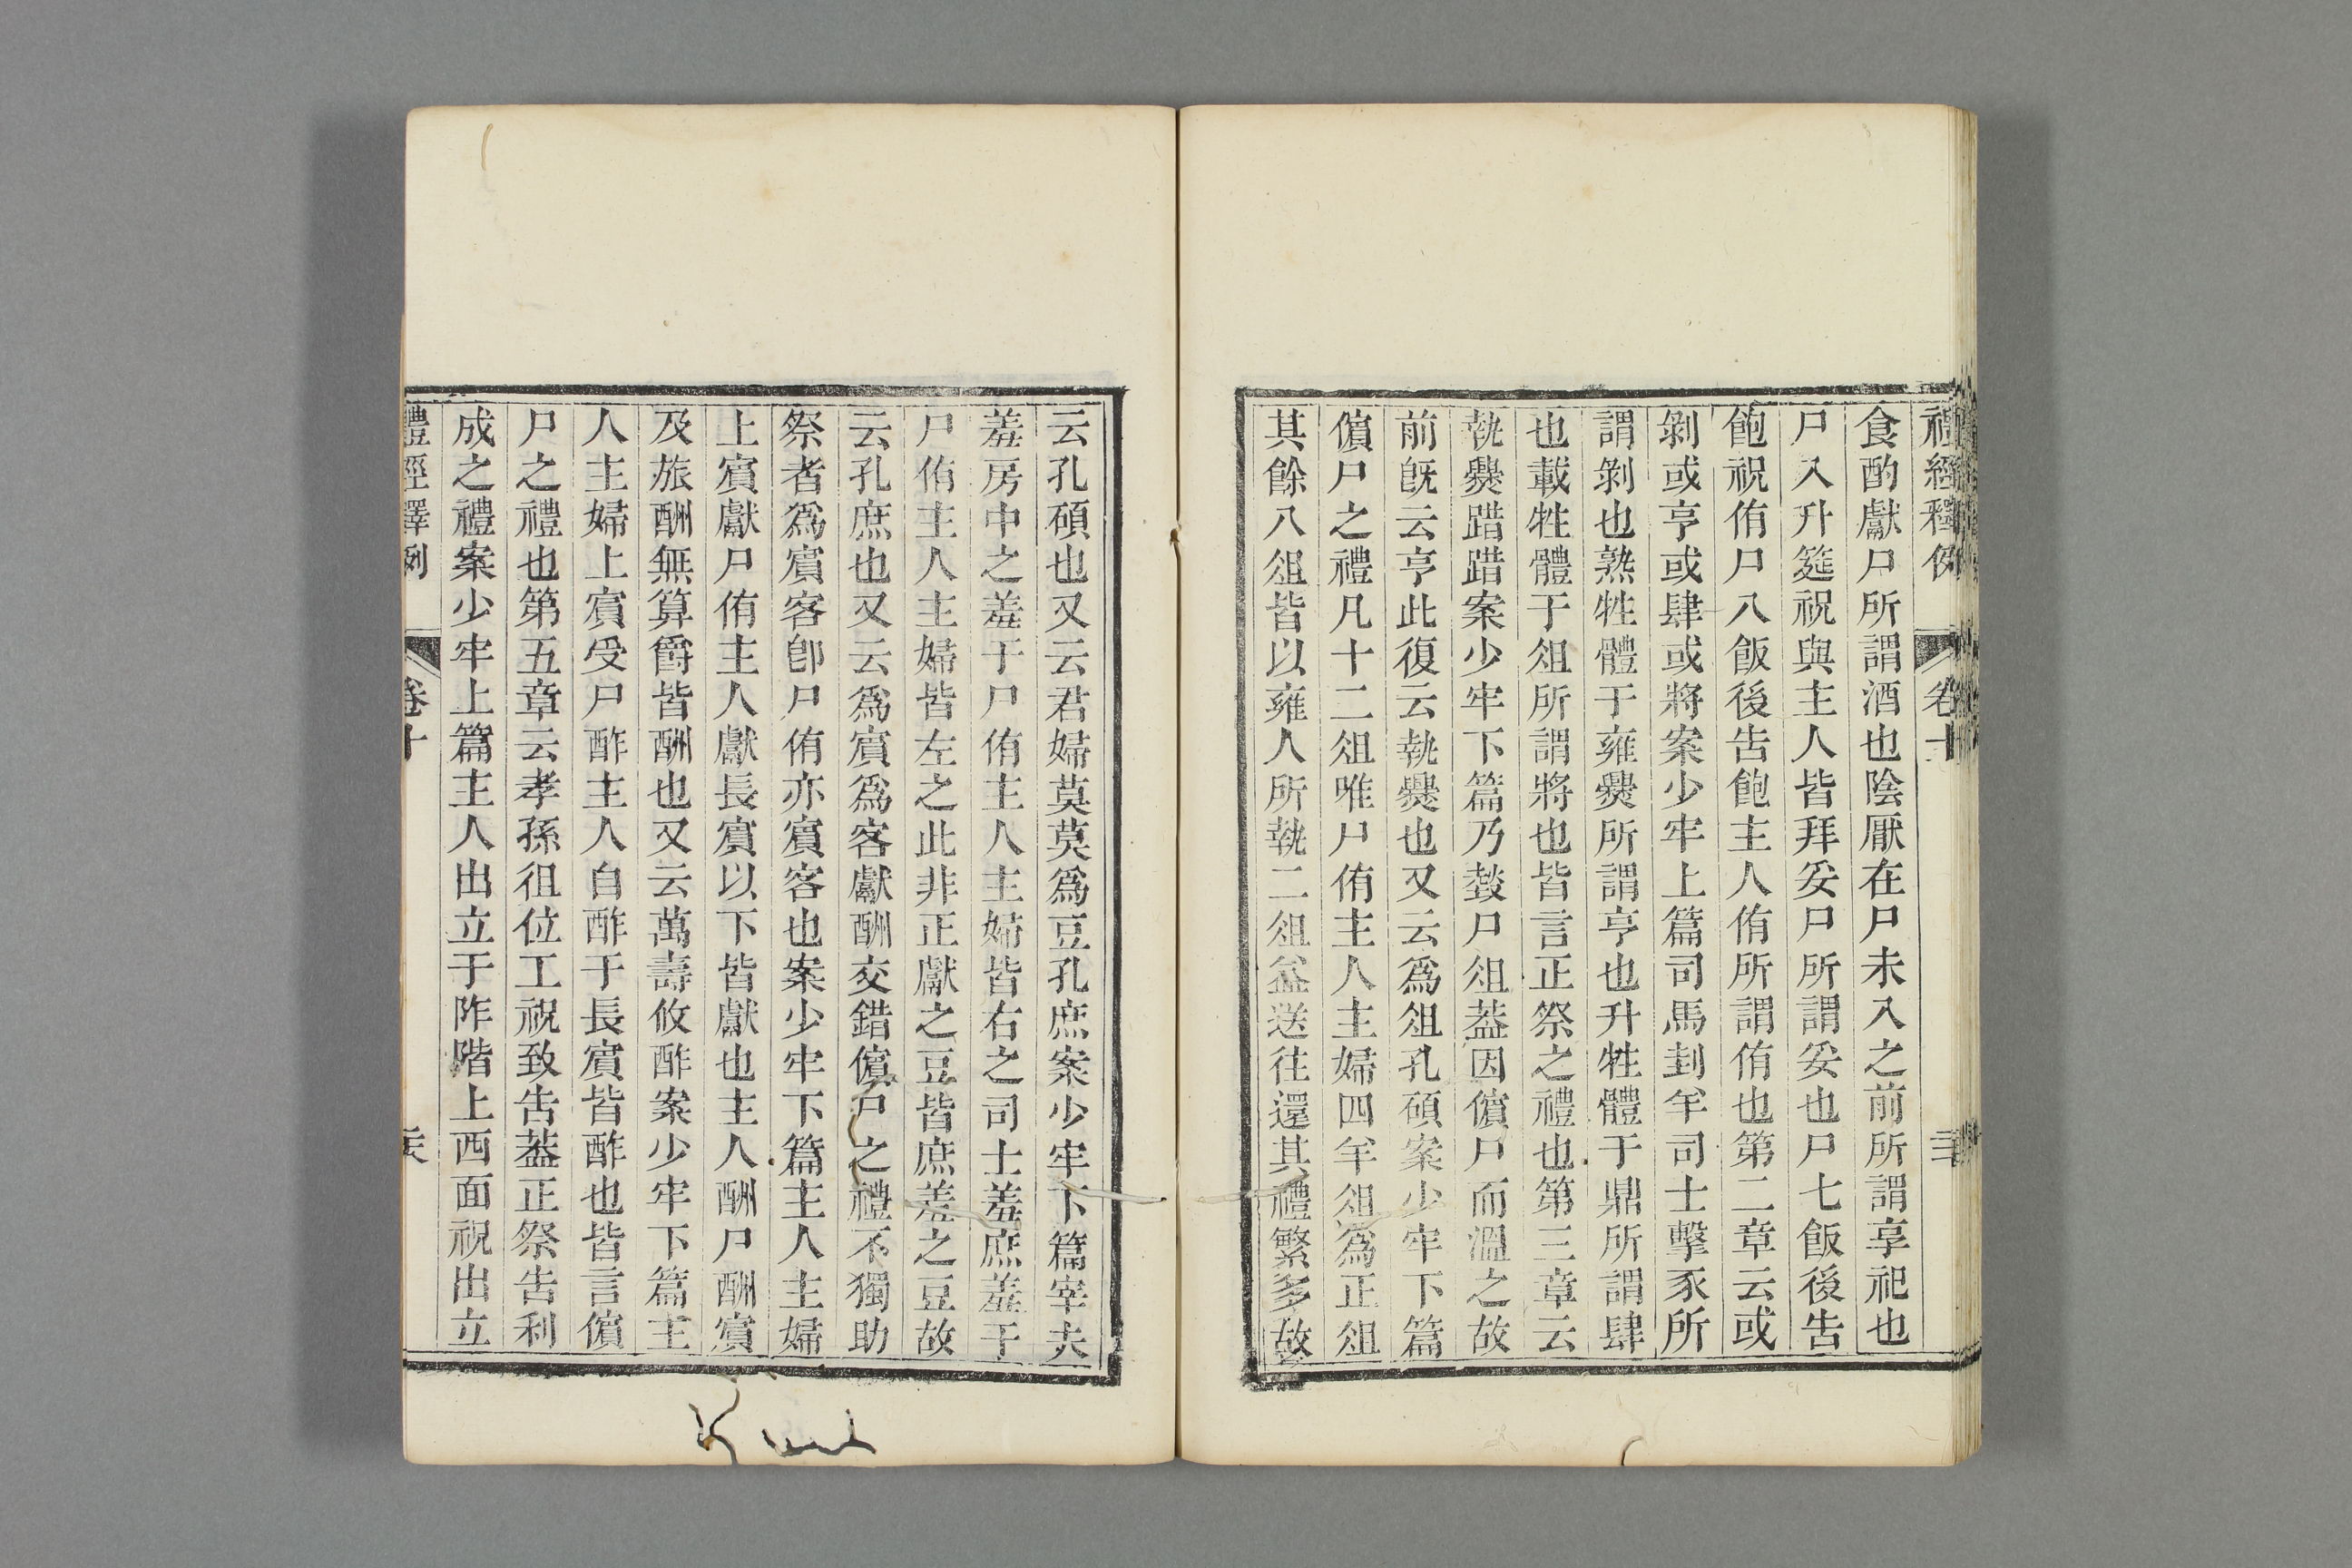 禮經釋例 卷十 三
食酌獻尸所謂酒也陰厭在尸未入之前所謂享祀也
尸入升筵祝與主人皆拜妥尸所謂妥也尸七飯後告
飽祝侑尸八飯後告飽主人侑所謂侑也第二章云或
剝或亨或肆或將案少牢上篇司馬刲羊司士擊豕所
謂剝也熟牲體于雍爨所謂亨也升牲體于鼎所謂肆
也載牲體于俎所謂將也皆言正祭之禮也第三章云
執爨踖踖案少牢下篇乃燅尸俎蓋因儐尸而溫之故
前既云亨此復云執爨也又云為俎孔碩案少牢下篇
儐尸之禮凡十二俎唯尸侑主人主婦四羊俎為正俎
其餘八俎皆以雍人所執二俎益送往還其禮繁多故
云孔碩也又云君婦莫莫為豆孔庶案少牢下篇宰夫
羞房中之羞于尸侑主人主婦皆右之司士羞庶羞于
尸侑主人主婦皆左之此非正獻之豆皆庶羞之豆故
云孔庶也又云為賓為客獻酬交錯儐尸之禮不獨助
祭者為賓客卽尸侑亦賓客也案少牢下篇主人主婦
上賓獻尸侑主人獻長賓以下皆獻也主人酬尸酬賓
及旅酬無算爵皆酬也又云萬壽攸酢案少牢下篇主
人主婦上賓受尸酢主人自酢于長賓皆酢也皆言儐
尸之禮也第五章云孝孫徂位工祝致告蓋正祭告利
成之禮案少牢上篇主人出立于阼階上西面祝出立
禮經釋例 卷十